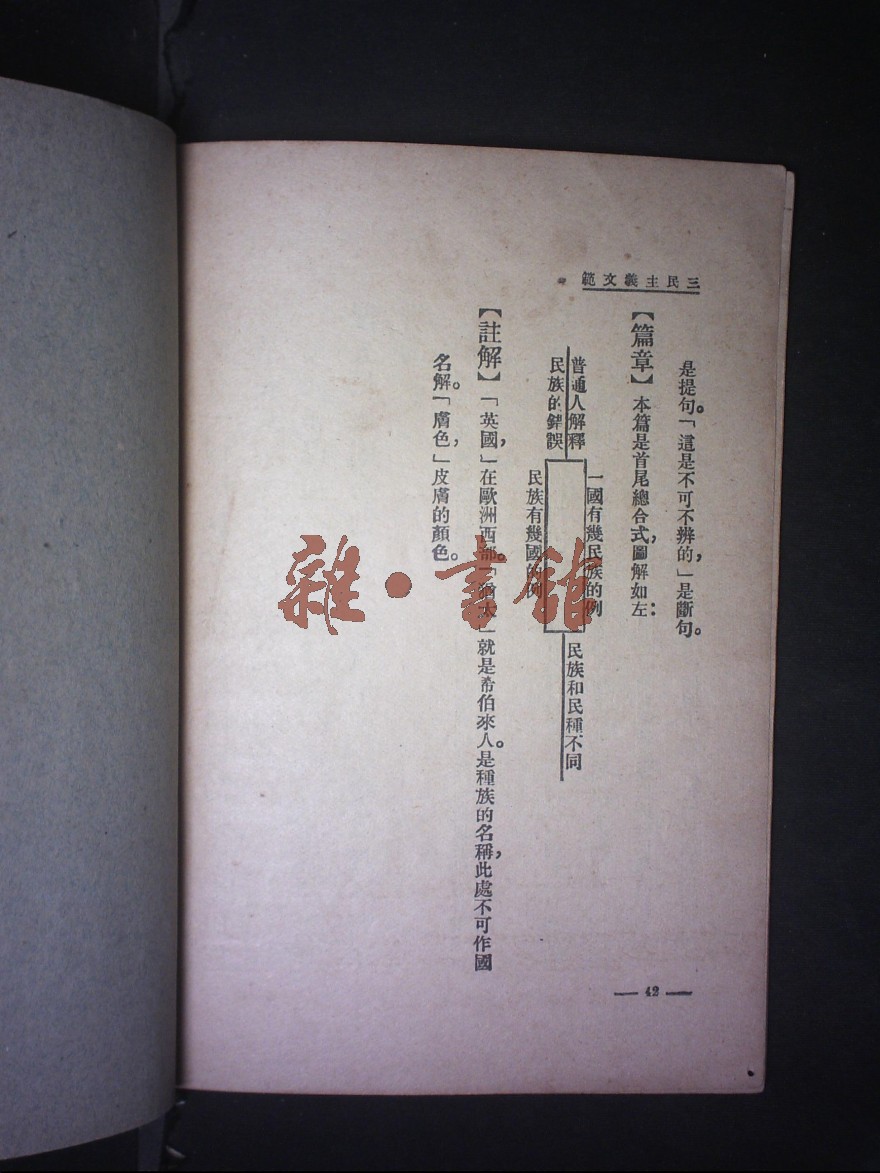 三民主義文範
是提句。「這是不可不辨的，」是斷句。
【篇章】本篇是首尾總合式，圖解如左：
普通人解釋
民族的錯誤
一國有幾民族的例
民族有幾國的例
民族和民種不同
【註解】「英國，」在歐洲西部。「猶太」就是希伯來人。是種族的名稱，此處不可作國
名解。「膚色，」皮膚的顏色。
— 42 —
雜·書館